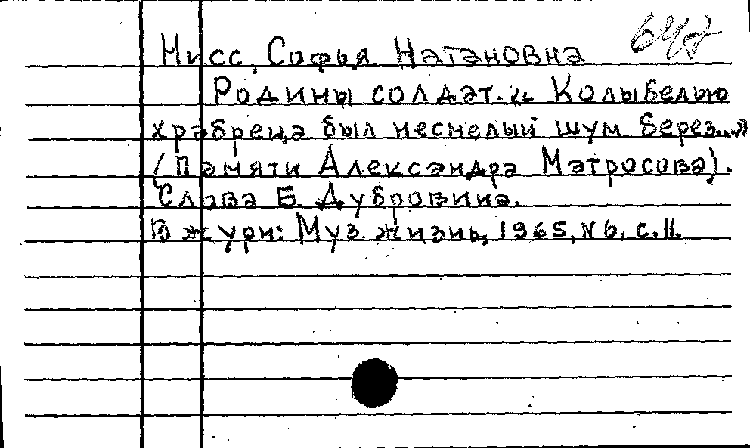 Нисс, Софья Натановна
Родины солдат. „Колыбелью
храбреца был несмелый шум берез...»
(Памяти Александра Матросова).
Слова Б. Дубровина.
В журн: Муз жизнь, 1965, № 6, с. 11.